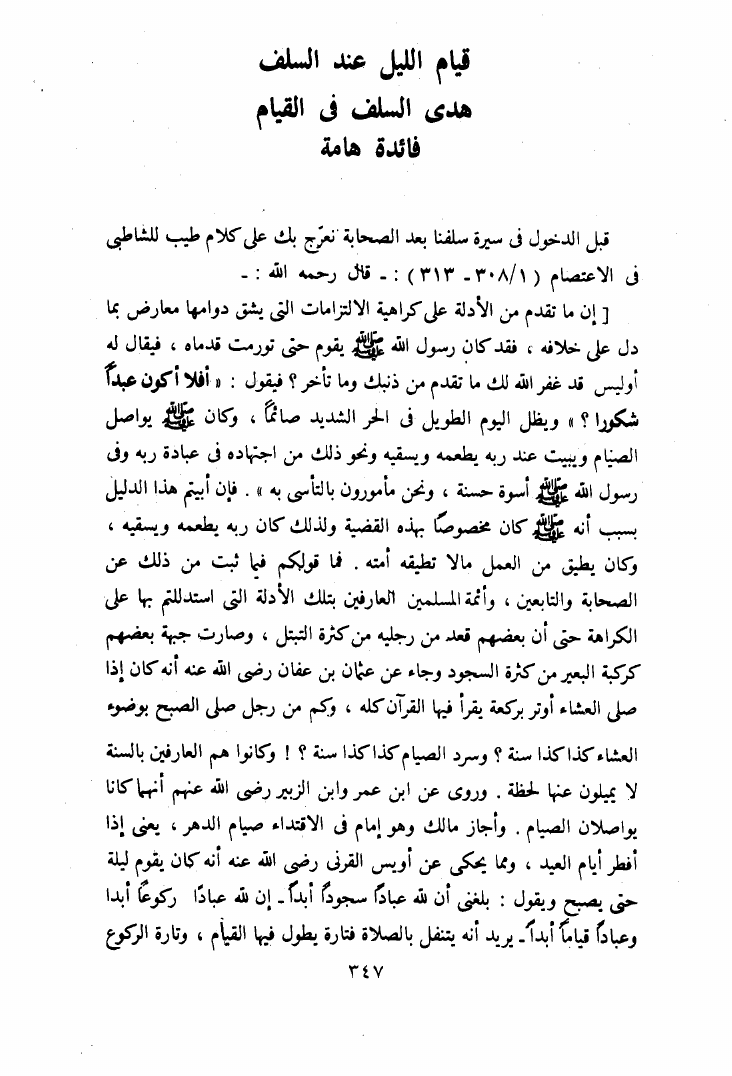 قيام الليل عند السلف
هدى السلف فى القيام
فائدة هامة
قبل الدخول فى سيرة سلفنا بعد الصحابة نعرّج بك على كلام طيب للشاطبى
فى الاعتصام ( ٣٠٨/١ ـ ٣١٣ ) : ـ قال رحمه الله : ـ
[ إن ما تقدم من الأدلة على كراهية الالتزامات التى يشق دوامها معارض بما
دل على خلافه ، فقد كان رسول الله ﷺ يقوم حتى تورمت قدماه ، فيقال له
أوليس قد غفر الله لك ما تقدم من ذنبك وما تأخر ؟ فيقول : « أفلا أكون عبداً
شكورا ؟ » ويظل اليوم الطويل فى الحر الشديد صائماً ، وكان ﷺ يواصل
الصيام ويبيت عند ربه يطعمه ويسقيه ونحو ذلك من اجتهاده فى عبادة ربه وفى
رسول الله ﷺ أسوة حسنة ، ونحن مأمورون بالتأسى به » . فإن أبيتم هذا الدليل
بسبب أنه ﷺ كان مخصوصاً بهذه القضية ولذلك كان ربه يطعمه ويسقيه ،
وكان يطيق من العمل مالا تطيقه أمته . فما قولكم فيما ثبت من ذلك عن
الصحابة والتابعين ، وأئمة المسلمين العارفين بتلك الأدلة التى استدللتم بها على
الكراهة حتى أن بعضهم قعد من رجليه من كثرة التبتل ، وصارت جبهة بعضهم
كركبة البعير من كثرة السجود وجاء عن عثمان بن عفان رضى الله عنه أنه كان إذا
صلى العشاء أوتر بركعة يقرأ فيها القرآن كله ، وكم من رجل صلى الصبح بوضوء
العشاء كذا كذا سنة ؟ وسرد الصيام كذا كذا سنة ؟ ! وكانوا هم العارفين بالسنة
لا يميلون عنها لحظة . وروى عن ابن عمر وابن الزبير رضى الله عنهم أنهما كانا
يواصلان الصيام . وأجاز مالك وهو إمام فى الاقتداء صيام الدهر ، يعنى إذا
أفطر أيام العيد ، ومما يحكى عن أويس القرنى رضى الله عنه أنه كان يقوم ليلة
حتى يصبح ويقول : بلغنى أن لله عباداً سجوداً أبداً ـ إن لله عبادًا ركوعاً أبدا
وعباداً قياماً أبداً ـ يريد أنه يتنفل بالصلاة فتارة يطول فيها القيام ، وتارة الركوع
٣٤٧